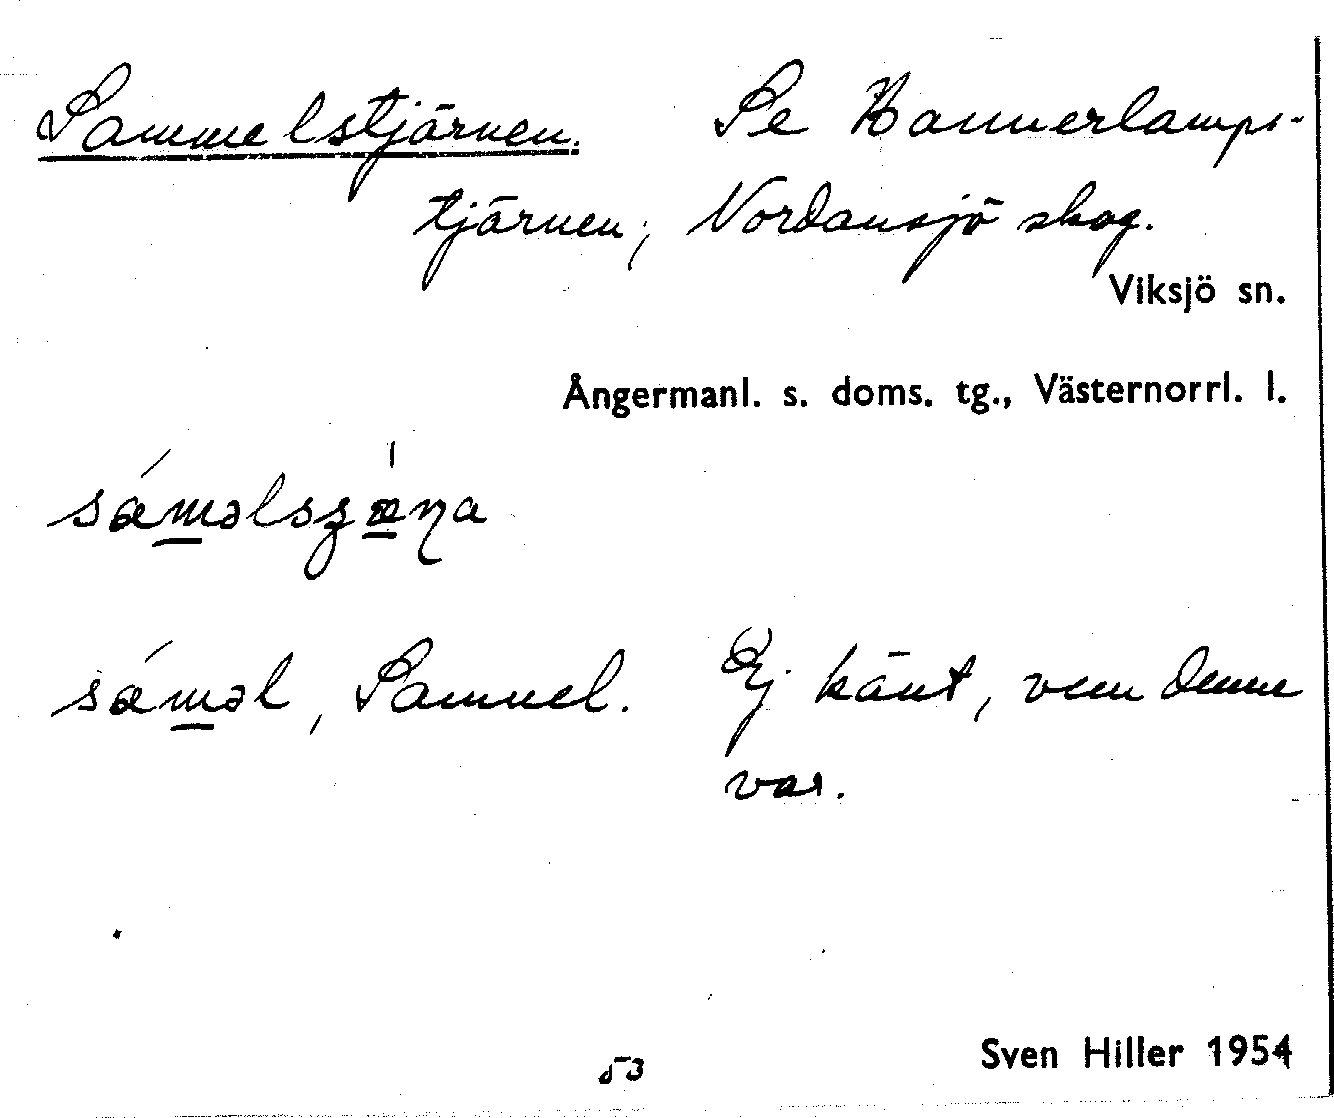 Sammelstjärnen. Se Hannerlamps-
tjärnen, Nordansjö skog.
Viksjö sn.
Ångermanl. s. doms. tg., Västernorrl. l.
sǽməl
, Samuel. Ej känt, vem denne
var.
53
Sven Hiller 1954